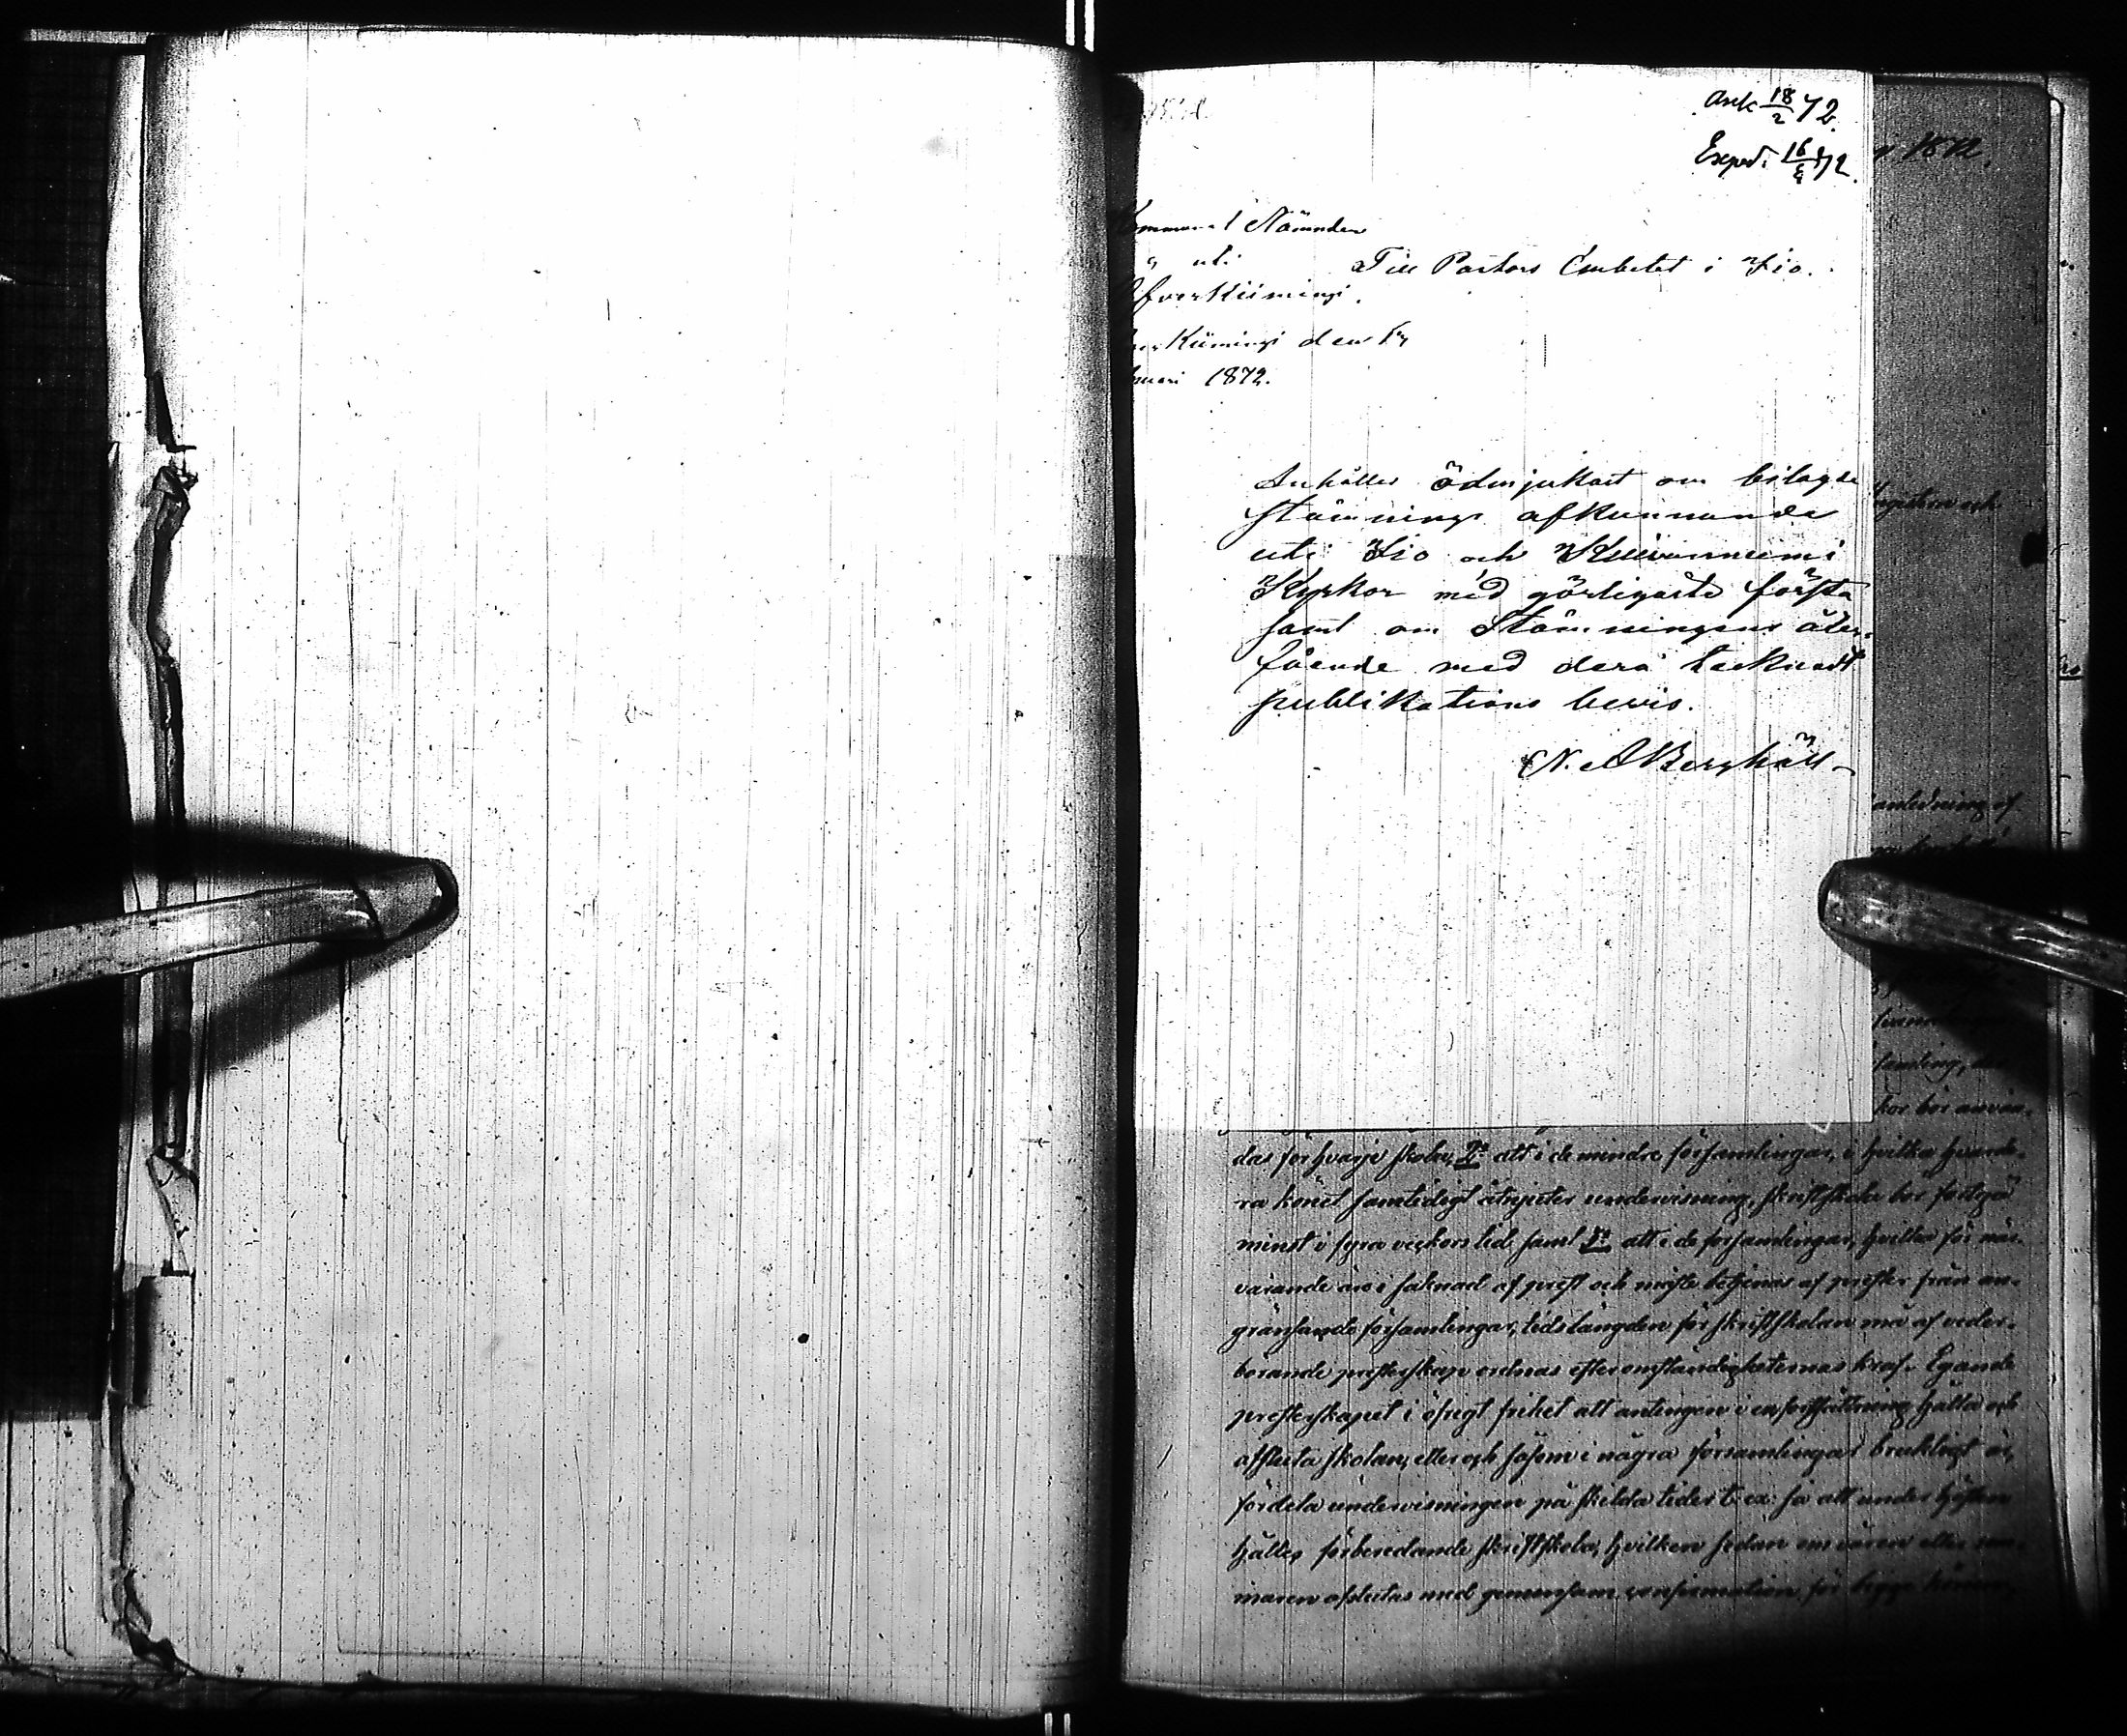 Ank 18/2 72.
Exped. 16/4 72.
1872.
Kommunal Nämnden
uti
Till Pastors Embetet i Ijo.
Öfverkiimingi.
Kiimingi den
1872.
Anhålles ödmjukast om bilagde
Stämnings afkunnande
uti Ijo och Kuivaniemi
Kyrkor med görligaste första
samt om Stämningens åter-
fående med derå tecknadt
publikations bevis.
N. A Berghäll
anledning af
samling,
kor bör använ-
das för hvarje skola, 2:o att i de mindre församlingar, i hvilka hvarde-
ra könet samtidigt åtnjuter undervisning, skriftskola bör fortgå
minst i fyra veckors tid samt 3:o att i de församlingar, hvilka för när-
varande äro i saknad af prest och måste betjenas af prester från an-
gränsande församlingar, tidslängden för skriftskolan må af veder-
börande presterskap ordnas efter omständigheternas kraf. Egande
presterskapet i öfrigt frihet att antingen i en fortsättning hålla och
afsluta skolan, eller och såsom i några församlingar brukligt är,
fördela undervisningen på skilda tider t. ex. så att under hösten
hålles förberedande skriftskola, hvilken sedan om våren eller som-
maren afslutas med gemensam confirmation för begge könen